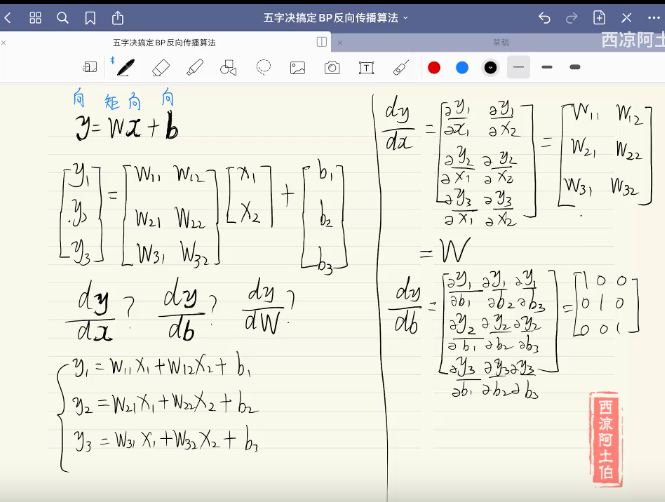 五字决搞定BP反向传播算法
五字决搞定BP反向传播算法
草稿
西凉阿土
向 矩 向 向
y = Wx + b
[y₁ y₂ y₃] = [W₁₁ W₁₂ W₂₁ W₂₂ W₃₁ W₃₂] [x₁ x₂] + [b₁ b₂ b₃]
dy/dx ? dy/db ? dy/dW ?
y₁ = W₁₁x₁ + W₁₂x₂ + b₁
y₂ = W₂₁x₁ + W₂₂x₂ + b₂
y₃ = W₃₁x₁ + W₃₂x₂ + b₃
dy/dx = [∂y₁/∂x₁ ∂y₁/∂x₂ ∂y₂/∂x₁ ∂y₂/∂x₂ ∂y₃/∂x₁ ∂y₃/∂x₂] = [W₁₁ W₁₂ W₂₁ W₂₂ W₃₁ W₃₂]
= W
dy/db = [∂y₁/∂b₁ ∂y₁/∂b₂ ∂y/∂b₃ ∂y₂/∂b₁ ∂y₂/∂b₂ ∂y₂/∂b₃ ∂y₃/∂b₁ ∂y₃/∂b₂ ∂y₃/∂b₃] = [1 0 0 0 1 0 0 0 1]
西凉阿土伯